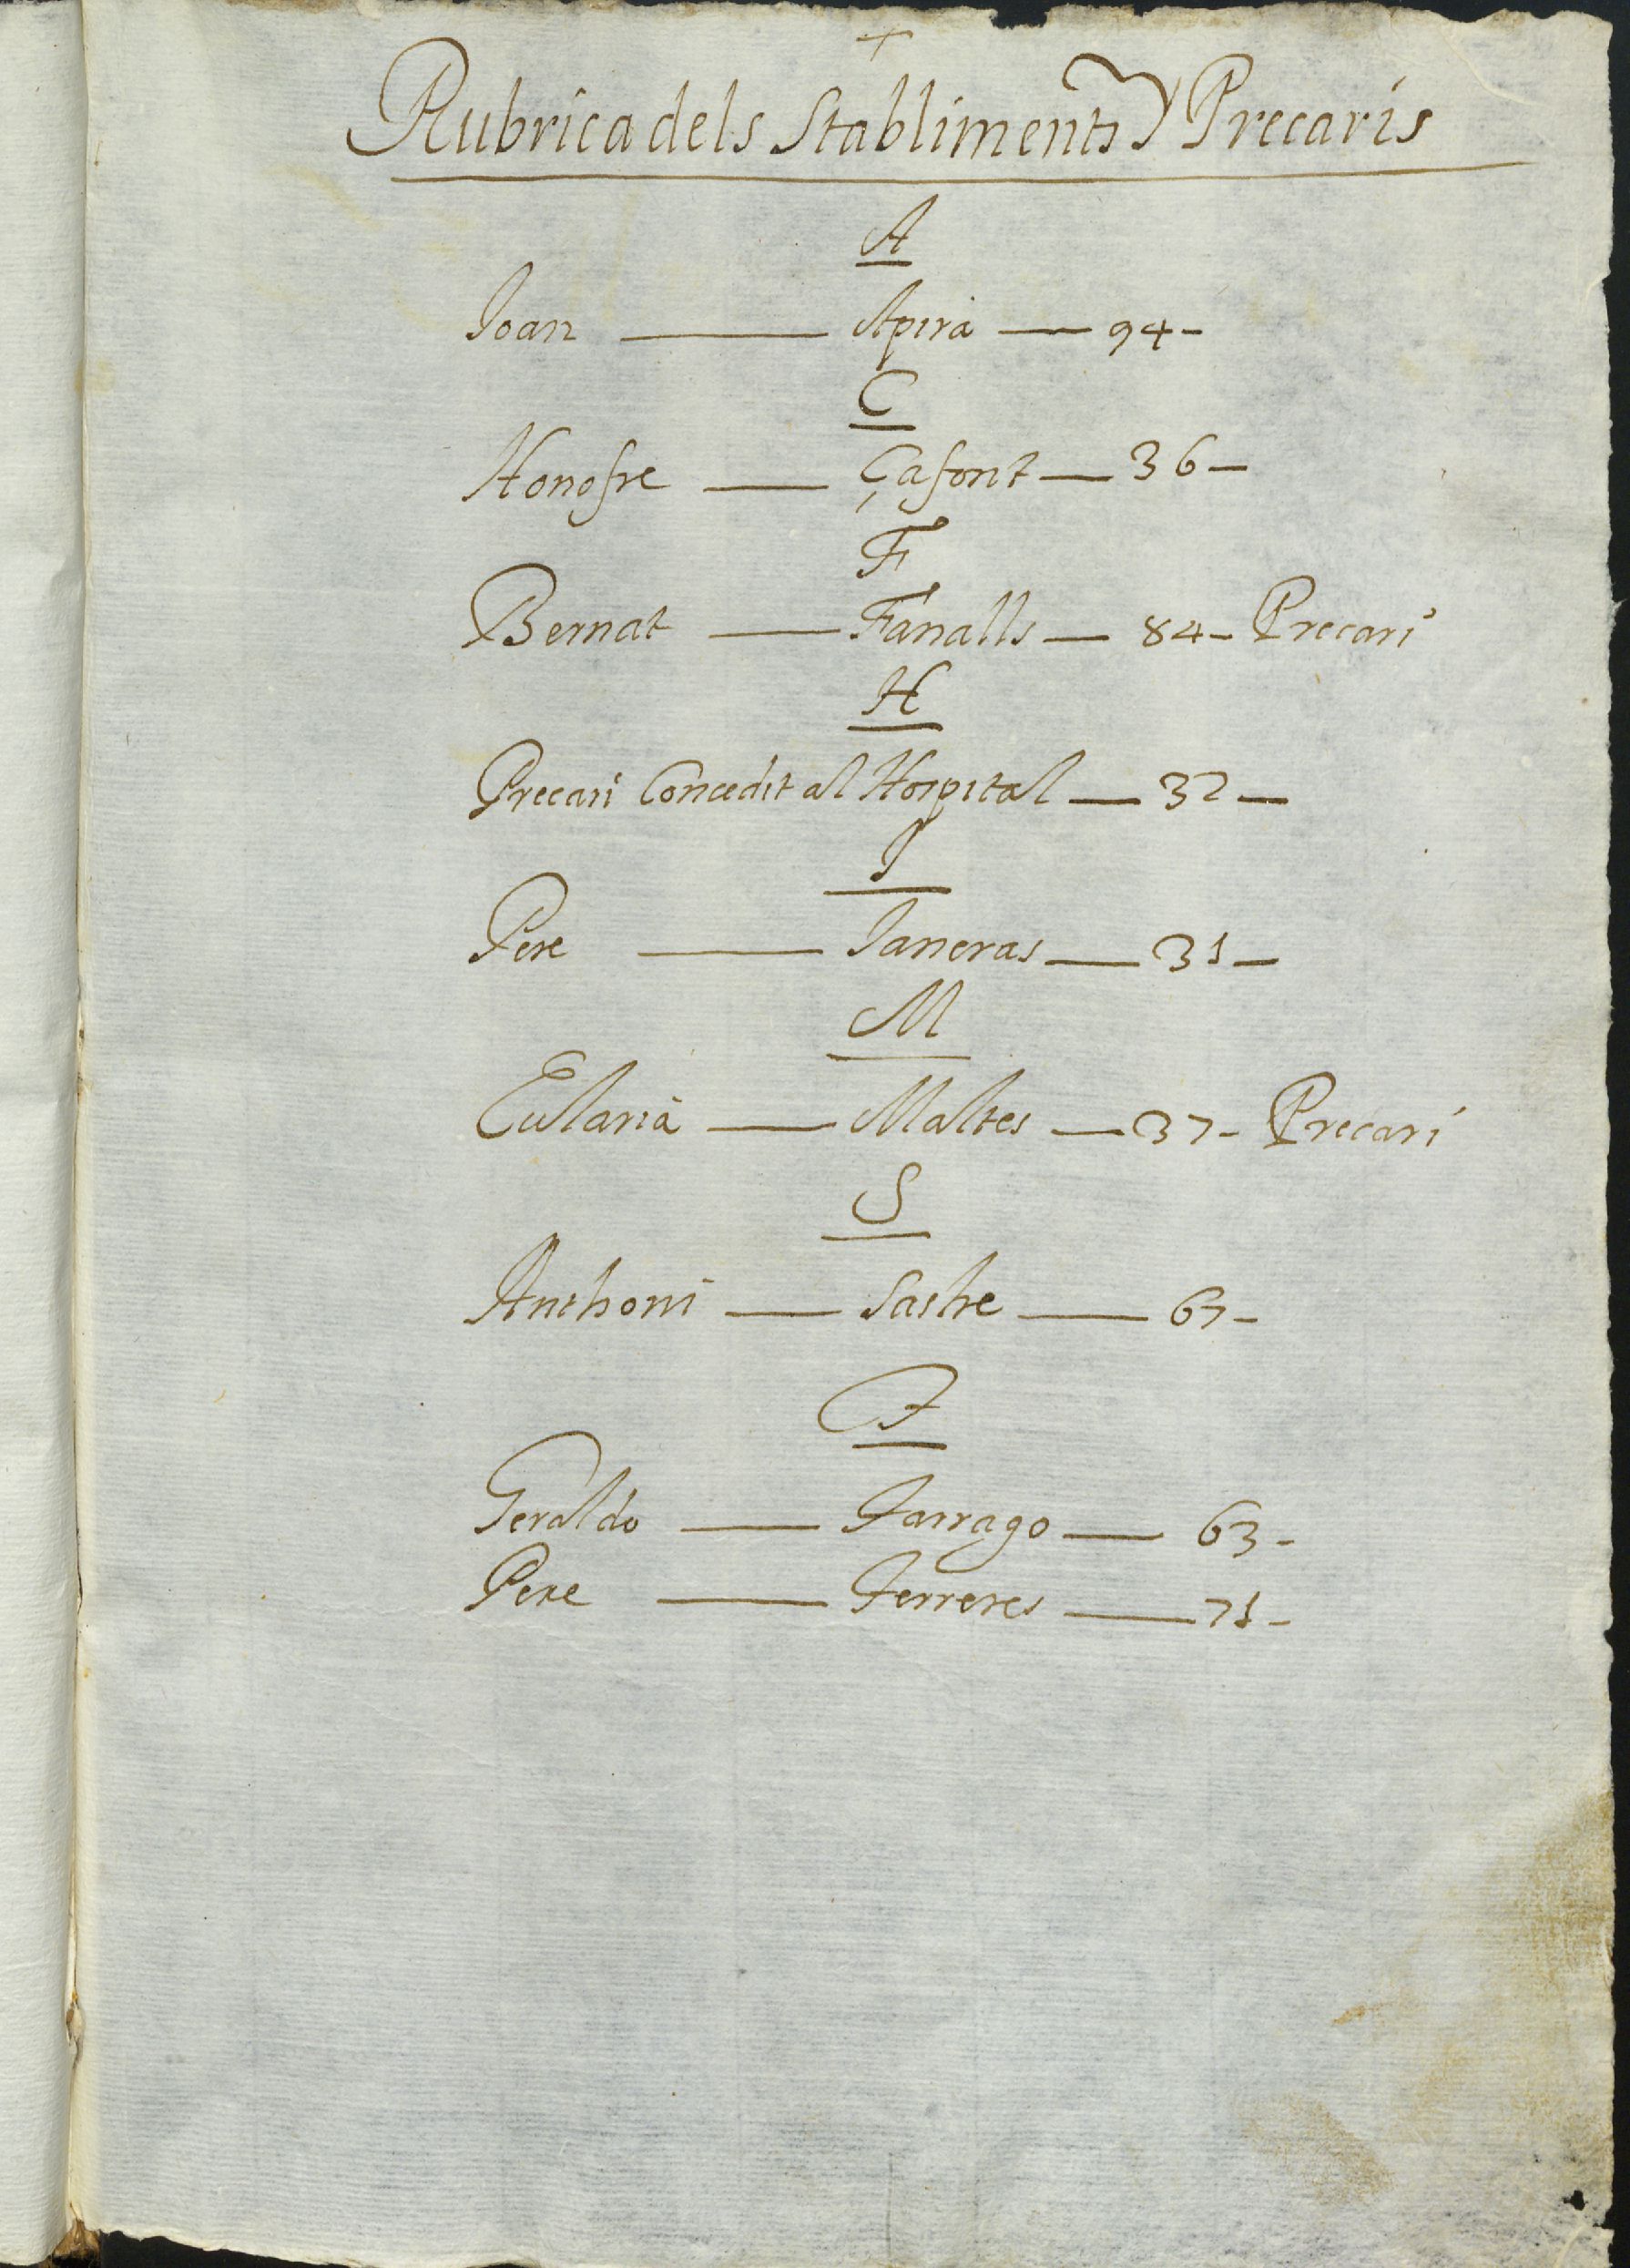 +
Rubrica dels Stabliments y Precaris
A
Joan — Apira — 94 -
C
Honofre — Çafont — 36 -
F
Bernat — Fanalls — 84 - Precari
H
Precari Concedit al Hospital — 32 -
J
Pere — Janeras — 31 -
M
Eularia — Maltes — 37 - Precari
S
Anthoni — Sastre — 67 -
T
Geraldo — Tarrago — 63 -
Pere — Terreres — 71 -